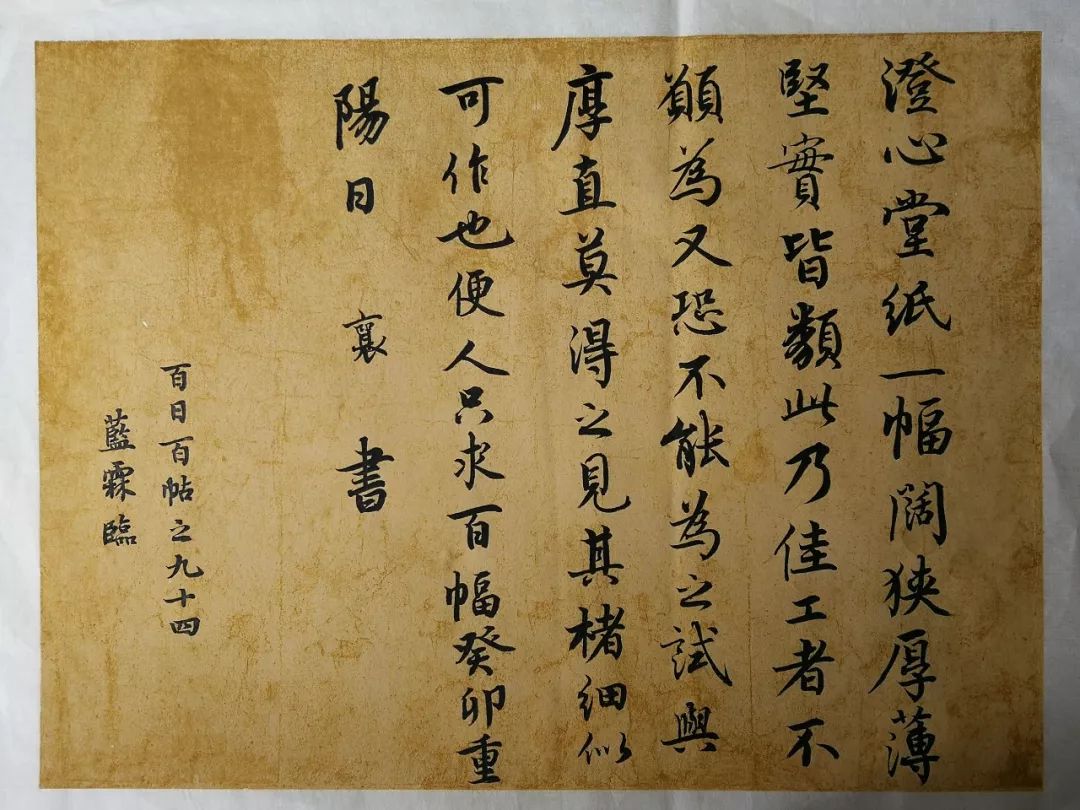 澄心堂紙一幅闊狹厚薄
堅實皆類此乃佳工者不
願為又恐不能為之試與
厚直莫得之見其楮細似
可作也便人只求百幅癸卯重
陽日襄書
百日百帖之九十四
藍霖臨